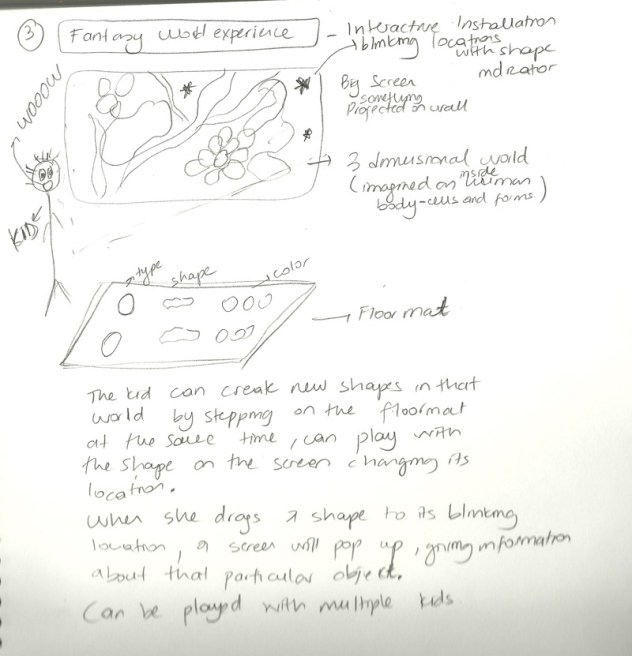 3 Fantasy World experience
- Interactive Installation
→ blinking locations
with shape
indicator
Big Screen
something
Projected on wall
→ 3 dimensional world
(imagined on inside human
body-cells and forms)
WOOOW
KID
type shape color
→ Floor mat
The kid can creat new shapes in that
world by stepping on the floormat
at the same time, can play with
the shape on the screen changing its
location.
When she drags a shape to its blinking
location, a screen will pop up, giving information
about that particular object.
Can be played with multiple kids